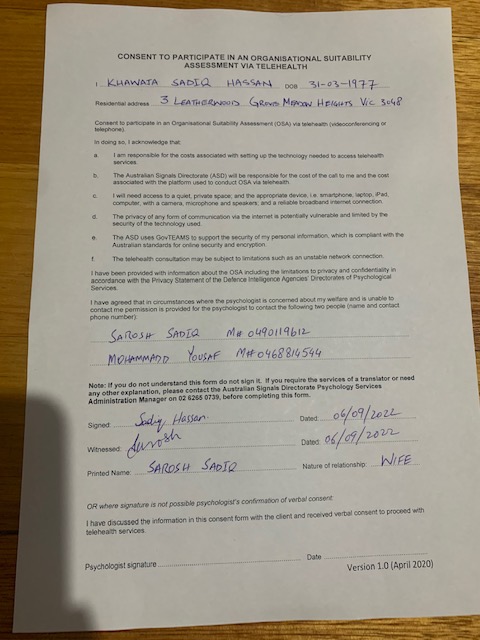 CONSENT TO PARTICIPATE IN AN ORGANISATIONAL SUITABILITY
ASSESSMENT VIA TELEHEALTH
I, KHAWAJA SADIQ HASSAN DOB 31-03-1977
Residential address 3 LEATHERWOOD GROVE MEADOW HEIGHTS VIC 3048
Consent to participate in an Organisational Suitability Assessment (OSA) via telehealth (videoconferencing or
telephone).
In doing so, I acknowledge that:
a. I am responsible for the costs associated with setting up the technology needed to access telehealth
services.
b. The Australian Signals Directorate (ASD) will be responsible for the cost of the call to me and the cost
associated with the platform used to conduct OSA via telehealth.
c. I will need access to a quiet, private space; and the appropriate device, i.e. smartphone, laptop, iPad,
computer; with a camera, microphone and speakers; and a reliable broadband internet connection.
d. The privacy of any form of communication via the internet is potentially vulnerable and limited by the
security of the technology used.
e. The ASD uses GovTEAMS to support the security of my personal information, which is compliant with the
Australian standards for online security and encryption.
f. The telehealth consultation may be subject to limitations such as an unstable network connection.
I have been provided with information about the OSA including the limitations to privacy and confidentiality in
accordance with the Privacy Statement of the Defence Intelligence Agencies' Directorates of Psychological
Services.
I have agreed that in circumstances where the psychologist is concerned about my welfare and is unable to
contact me permission is provided for the psychologist to contact the following two people (name and contact
phone number):
SAROSH SADIQ M# 0490119612
MOHAMMAD YOUSAF M# 0468814544
Note: If you do not understand this form do not sign it. If you require the services of a translator or need
any other explanation, please contact the Australian Signals Directorate Psychology Services
Administration Manager on 02 6265 0739, before completing this form.
Signed: Sadiq Hassan Dated: 06/09/2022
Witnessed: Sarosh Dated: 06/09/2022
Printed Name: SAROSH SADIQ Nature of relationship: WIFE
OR where signature is not possible psychologist's confirmation of verbal consent:
I have discussed the information in this consent form with the client and received verbal consent to proceed with
telehealth services.
Psychologist signature Date
Version 1.0 (April 2020)